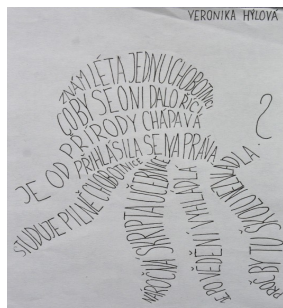 VERONIKA HÝLOVÁ
ZNÁM LÉTA JEDNU CHOBOTNICI
COBY SE O NÍ DALO ŘÍCI
JE OD PŘÍRODY CHÁPAVÁ
PŘIHLÁSILA SE NA PRÁVA
STUDUJE PILNĚ CHOBOTNICE
NÁROČNÁ SKRIPTA UČEBNICE
JE PO VĚDĚNÍ
PROČ BY TU ŠKOLU
?